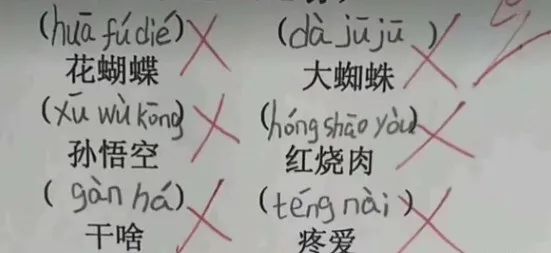 (huā fú dié) (dà jū jū)
花蝴蝶 大蜘蛛
(xū wù kōng) (hóng shāo yòu)
孙悟空 红烧肉
(gàn há) (téng nài)
干啥 疼爱